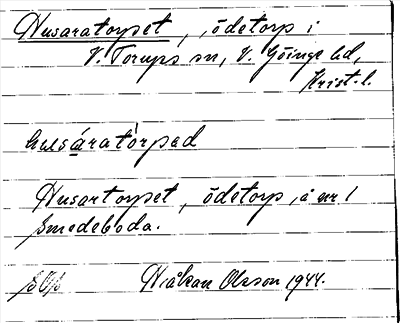 Husaratorpet, ödetorp i
V. Torups sn, V. Göinge hd,
Krist. l.
husáratòrpad
Husartorpet, ödetorp, å nr 1
Smedeboda.
Håkan Olsson 1944.